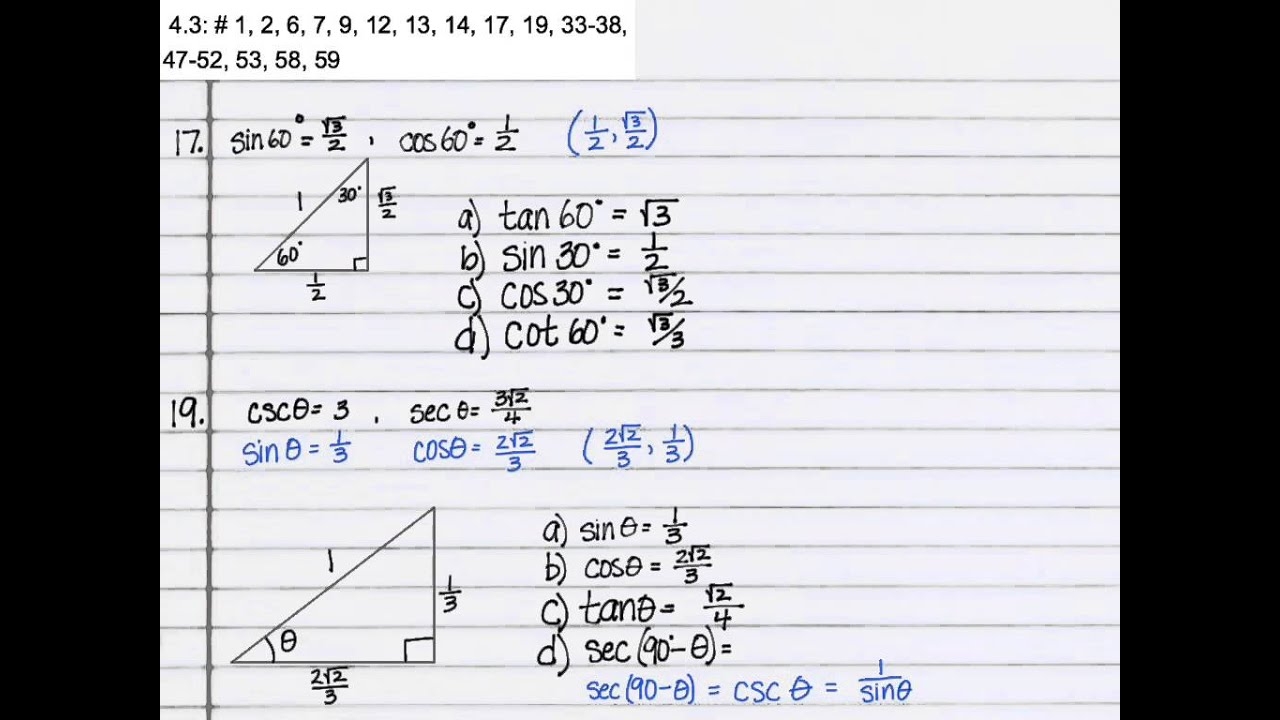 4.3: # 1, 2, 6, 7, 9, 12, 13, 14, 17, 19, 33-38,
47-52, 53, 58, 59
17. sin 60° = √3/2 , cos 60° = 1/2 (1/2, √3/2)
1 30° √3/2
60°
1/2
a) tan 60° = √3
b) sin 30° = 1/2
c) cos 30° = √3/2
d) cot 60° = √3/3
19. csc θ = 3 , sec θ = 3√2/4
sin θ = 1/3 cos θ = 2√2/3 (2√2/3, 1/3)
1
1/3
θ
2√2/3
a) sin θ = 1/3
b) cos θ = 2√2/3
c) tan θ = √2/4
d) sec (90° - θ) =
sec (90 - θ) = csc θ = 1/sin θ